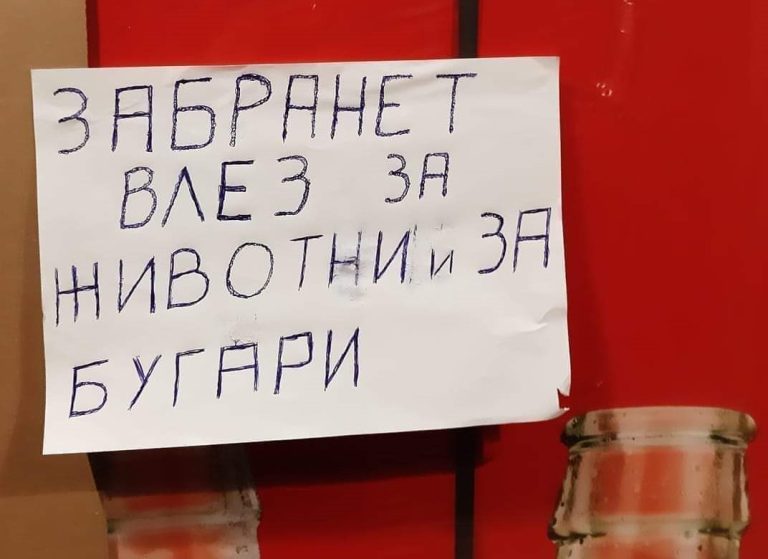 ЗАБРАНЕТ
ВЛЕЗ ЗА
ЖИВОТНИ и ЗА
БУГАРИ